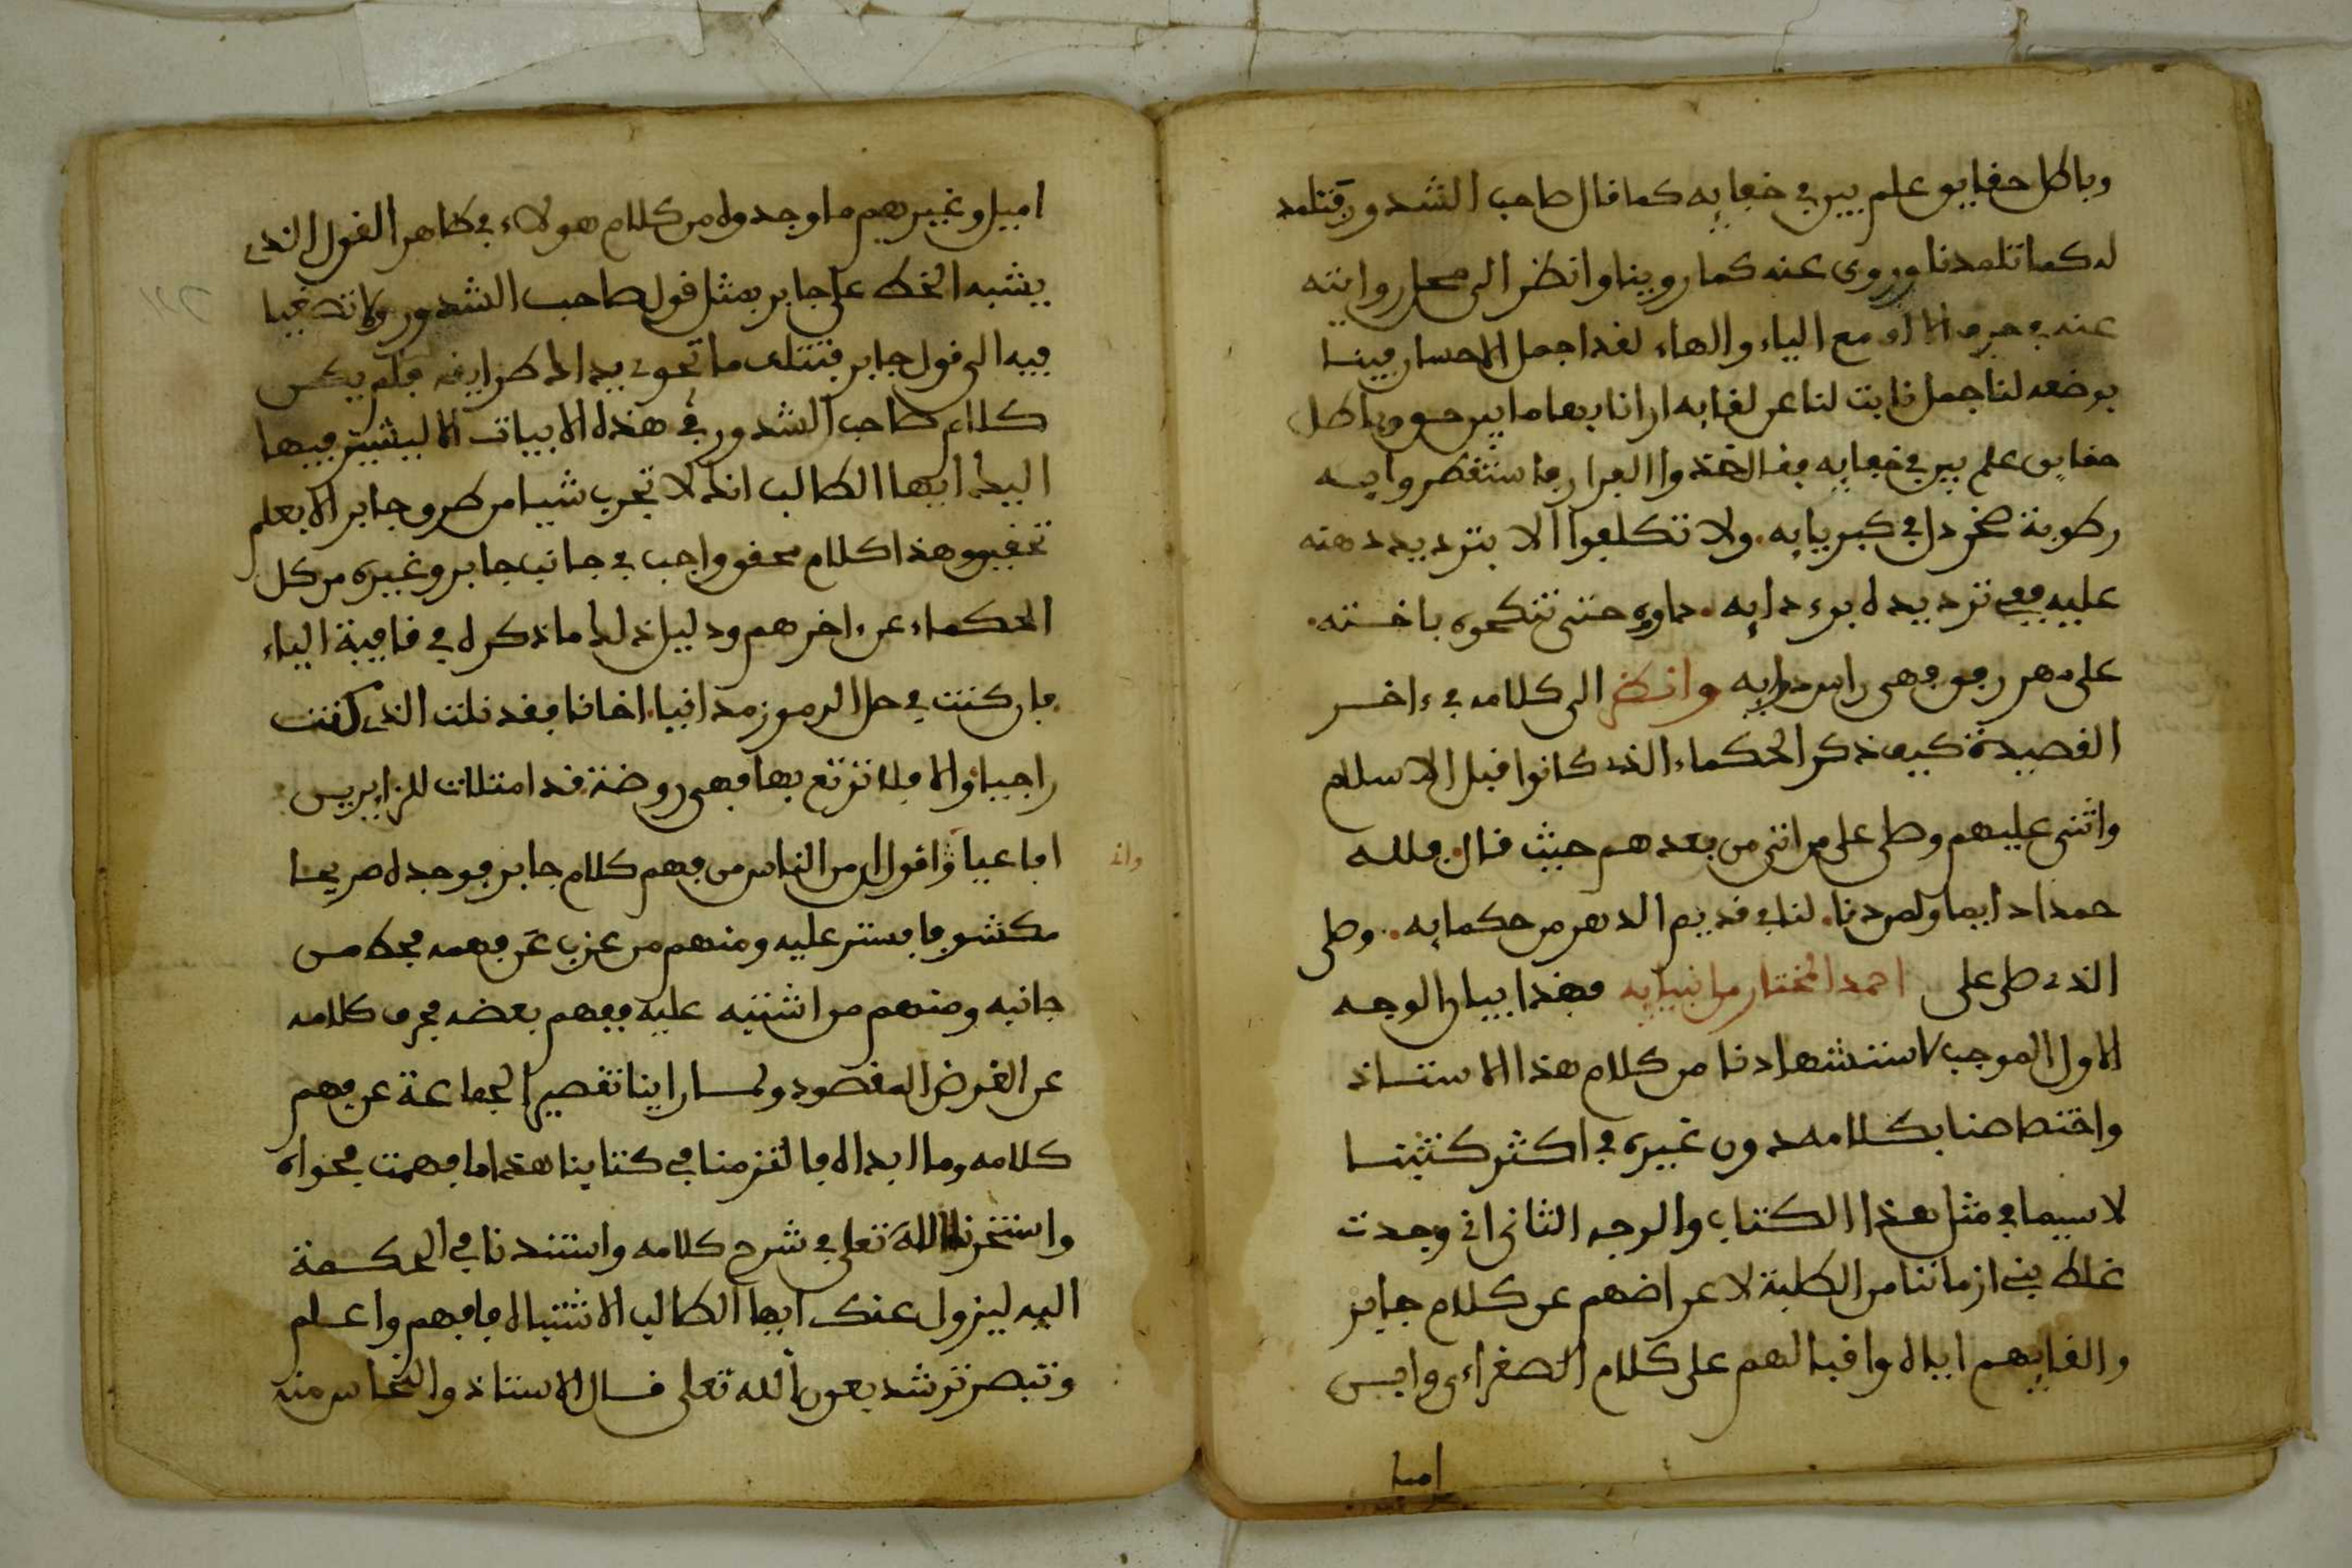 وباطل حقايق علم بين في خفايه كما قال صاحب الشذور فتلمذ
له كما تلمذنا وروى عنه كما روينا وانظر الى روايته
عنه في حرف مع الياء والهاء لقد اجمل الاحسان فينا
بوضعه لنا جمل نابت لنا عن لقايه ارانا بها ما بين حق وباطل
حقايق علم بين في خفايه فقال خذوا الفرار فاستقطروا
رطوبة في كبريايه ولا تكلفوا الا بترديد دهنه
عليه ففي ترديده برء دايه حتى تنكحوه باخته
على مهر رفو فهى راس دوايه وانظر الى كلامه في ءاخر
القصيدة كيف ذكر الحكماء الذي كانوا قبل الاسلام
واثنى عليهم وصلى على من اتى من بعدهم حيث قال فلله
حمدا دايما ولمن دنا لنا في قديم الدهر من حكمايه وصلى
الذي صلى على احمد المختار من انبيايه فهذا بيان الوجه
الاول الموجب لاستشهادنا من كلام هذا الاستاذ
واختصاصنا بكلامه دون غيره في اكثر كتبنا
لا سيما في مثل هذا الكتاب والوجه الثانى انى وجدت
غلط بنى ازماننا من الطلبة لاعراضهم عن كلام جابر
والغايهم اياه واقبالهم على كلام الصغراءى وابن
اميل
اميل وغيرهم ما وجدوه من كلام هولاء في ظاهر القول الذي
يشبه الخط على جابر بمثل قول صاحب الشذور ولا تصغيا
فيه الى قول جابر فتتلف ما تحوى يداك طرايفه فلم يكن
كلام صاحب الشذور في هذه الابيات الا ليشير فيها
اليك ايها الطالب انك لا تجرب شيا من طروق جابر الا بعلم
تحقيق وهذا كلام محقق واجب في جانب جابر وغيره من كل
الحكماء عن ءاخرهم ودليل ذلك ما ذكره في قافية الياء
فان كنت في حل الرموز مدانيا اخانا فقد نلت الذي كنت
راجيا والا فلا ترتع بها فهى روضة قد امتلات للزايرين
افاعيا واقول ان من الناس من فهم كلام جابر فوجده صريحا
مكشوفا فستر عليه ومنهم من عزب عن فهمه فحط من
جانبه ومنهم من اشتبه عليه ففهم بعضه فحرف كلامه
عن الغرض المقصود ولما راينا تقصير الجماعة عن فهم
كلامه وما ابداه فالتزمنا في كتابنا هذا ما فهمت فحواه
واستخرنا الله تعلى في شرح كلامه واستندنا في الحكمة
اليه ليزول عنك ايها الطالب الاشتباه فافهم واعلم
وتبصر ترشد بعون الله تعلى قال الاستاذ والنحاس منه
واذ